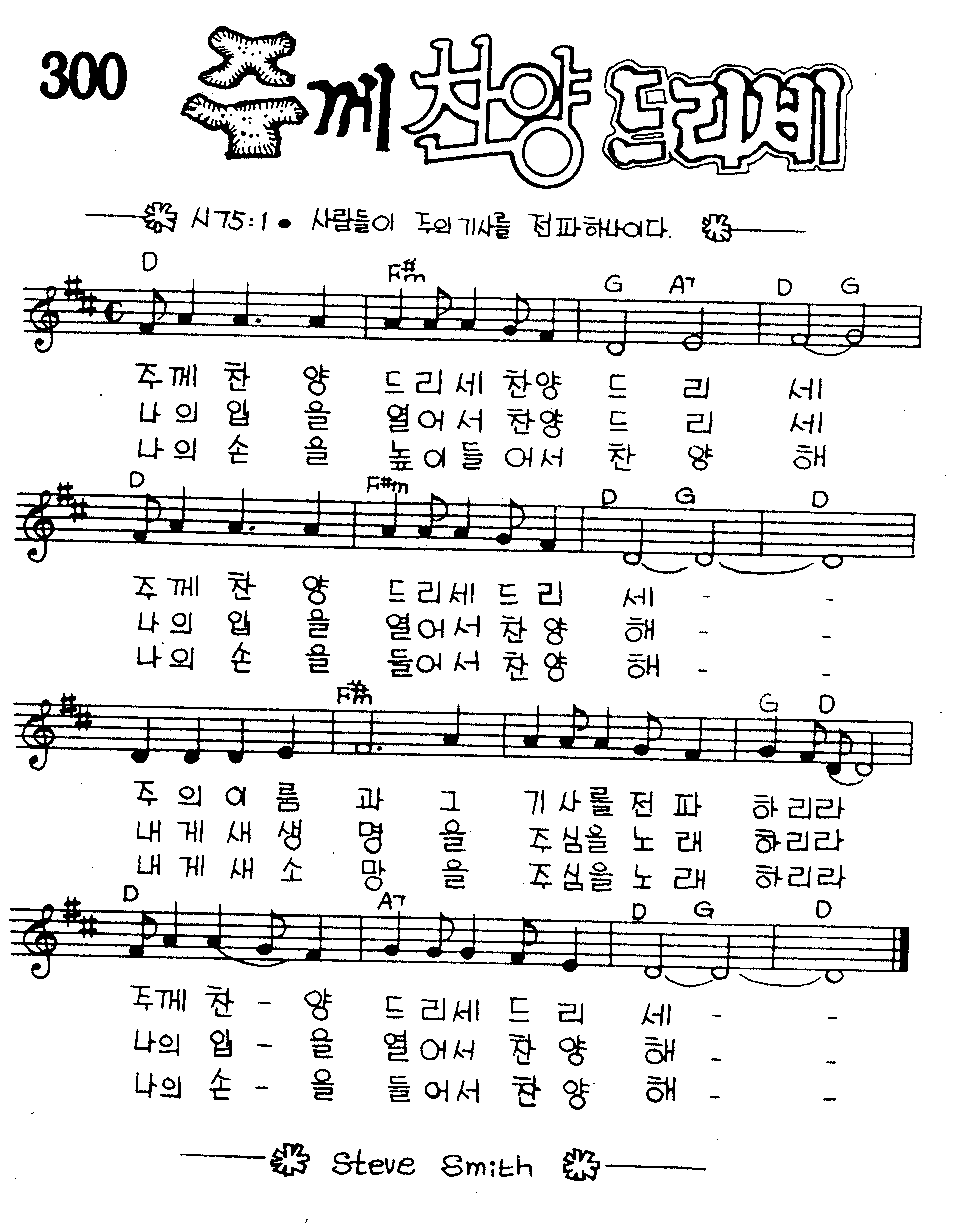 300 주께 찬양 드리세
시75:1 • 사람들이 주의 기사를 전파하나이다.
D F#m G A7 D G
주께 찬 양 드리세 찬양 드 리 세
나의 입 을 열어서 찬양 드 리 세
나의 손 을 높이들어서 찬 양 해
D F#m D G D
주께 찬 양 드리세 드리 세 - -
나의 입 을 열어서 찬양 해 - -
나의 손 을 들어서 찬양 해 - -
F#m G D
주 의 이 름 과 그 기사를 전파 하리라
내 게 새 생 명 을 주심을 노래 하리라
내 게 새 소 망 을 주심을 노래 하리라
D A7 D G D
주께 찬 - 양 드리세 드 리 세 - -
나의 입 - 을 열어서 찬 양 해 - -
나의 손 - 을 들어서 찬 양 해 - -
Steve Smith